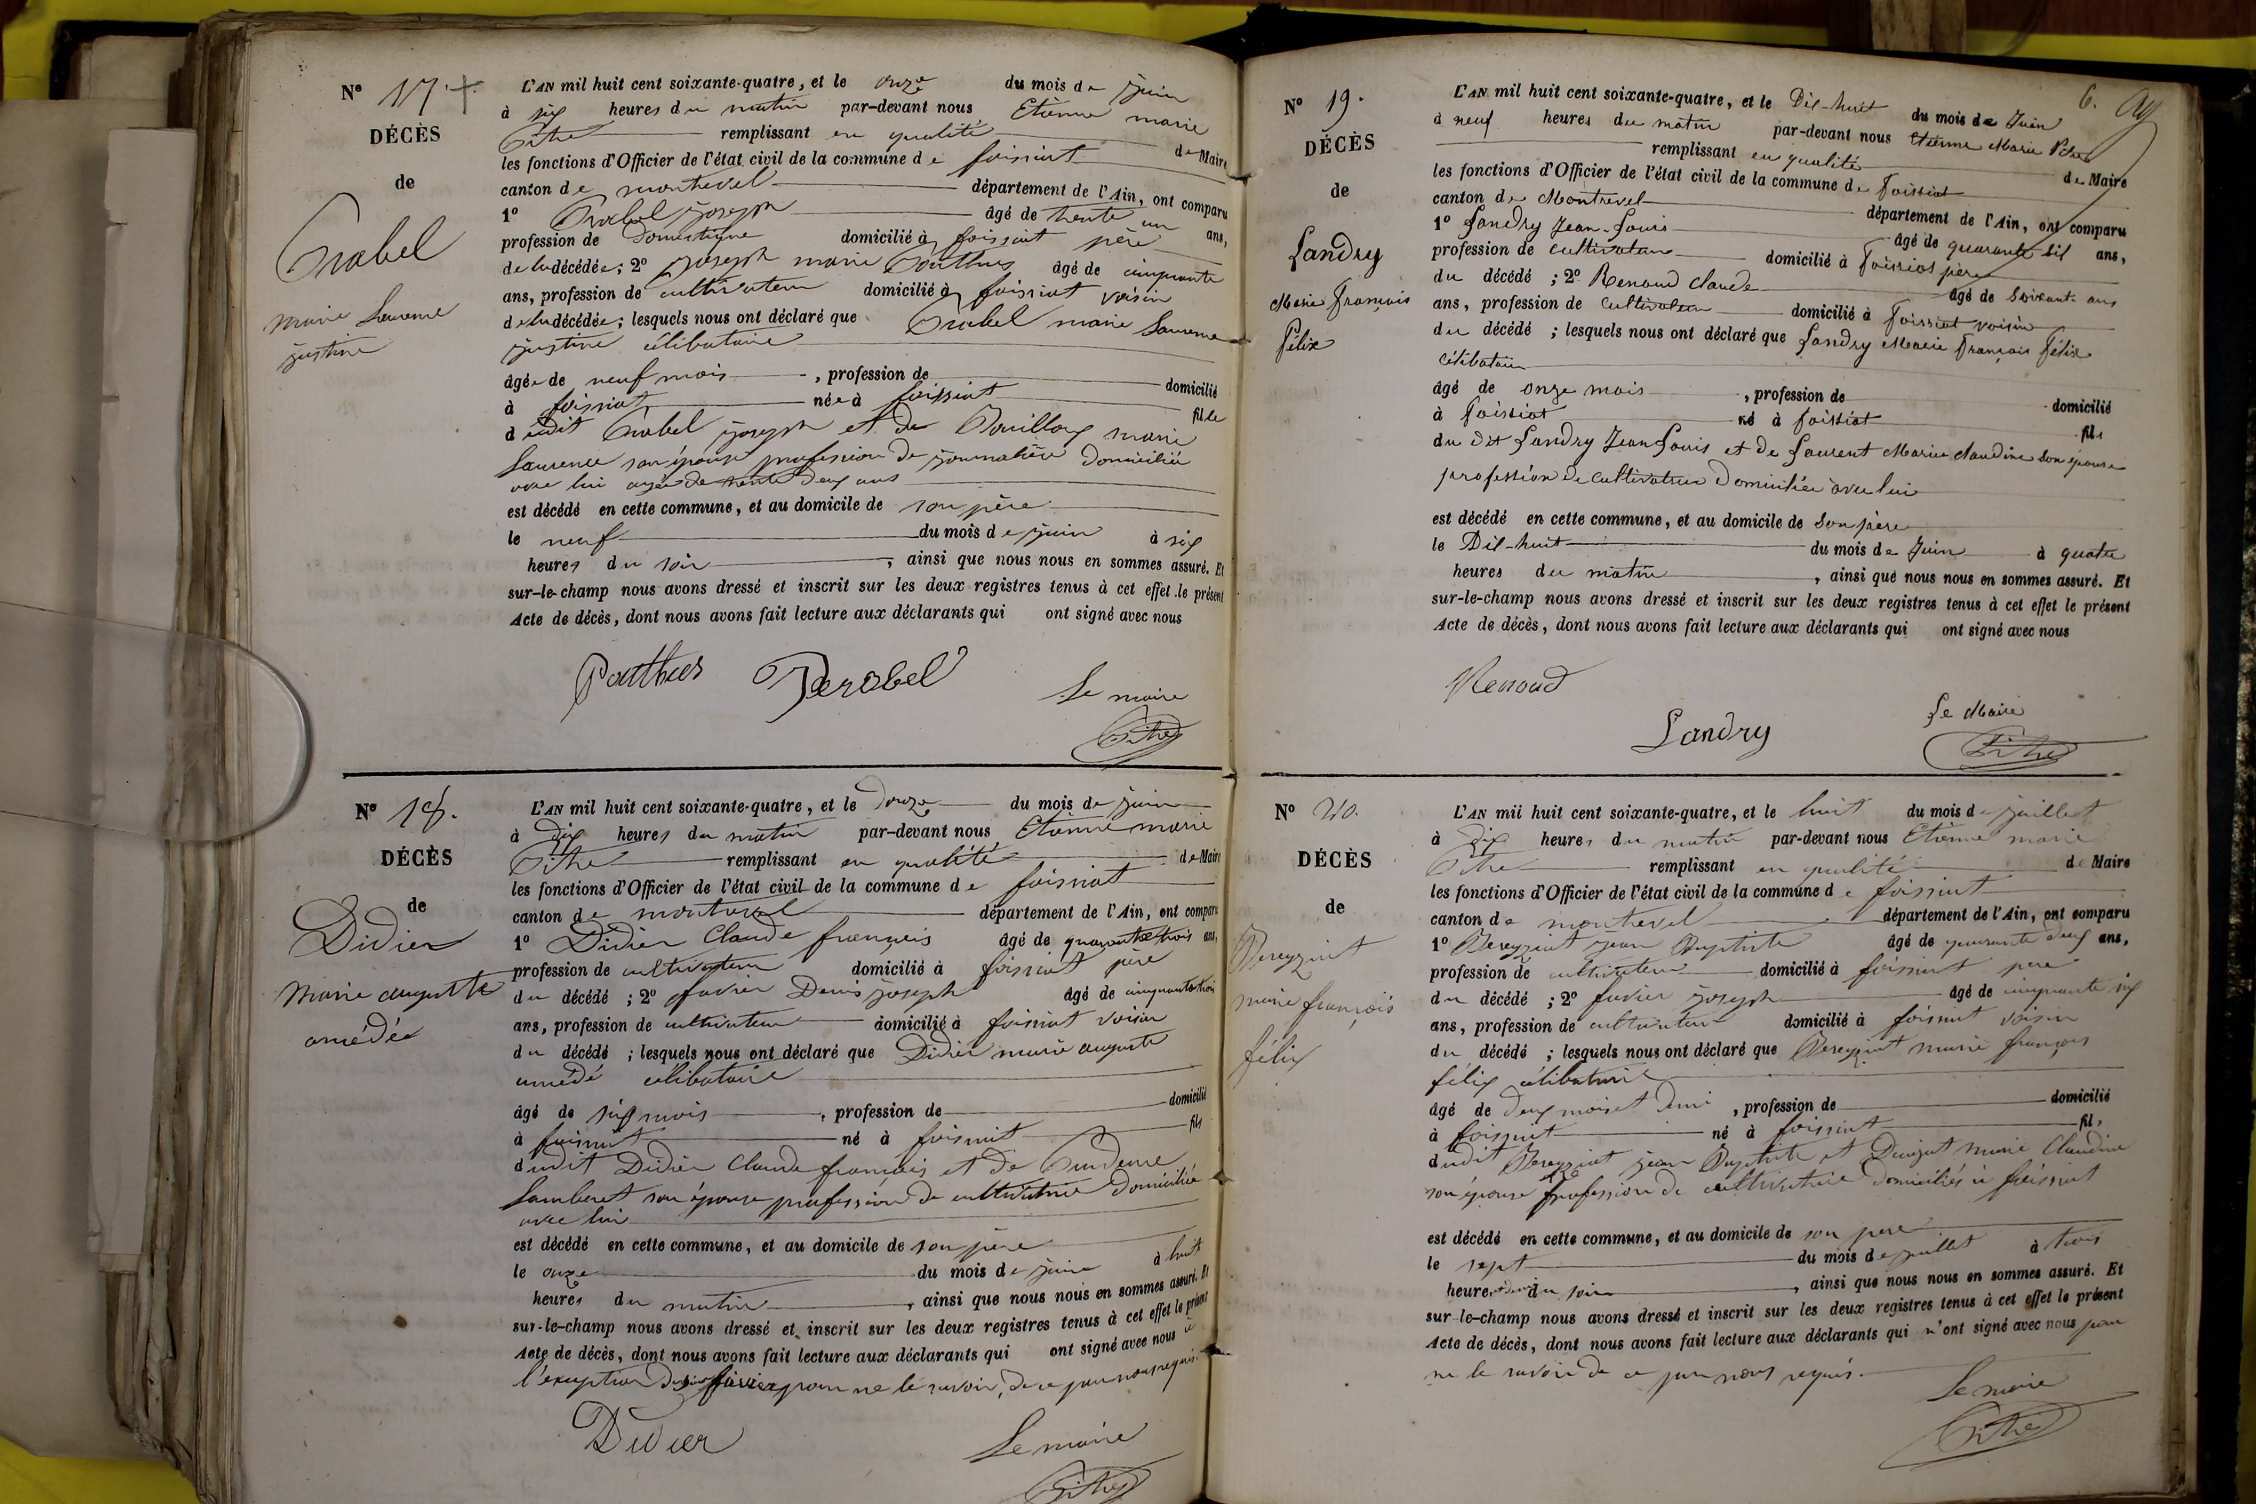 N° 17
DÉCÈS
de
Marie Laurence
justine
L'AN mil huit cent soixante-quatre, et le onze du mois de juin
à six heures du matin par-devant nous Etienne marie
Pithe remplissant en qualité de Maire
les fonctions d'Officier de l'état civil de la commune de foissiat
canton de montrevel département de l'Ain, ont comparu
1° joseph âgé de trente un ans,
profession de Domestique domicilié à foissiat père
de la décédée; 2° joseph marie Pouthus âgé de cinquante
ans, profession de cultivateur domicilié à foissiat voisin
de la décédée; lesquels nous ont déclaré que marie Laurence
justine célibataire
âgée de neuf mois, profession de domicilié
à foissiat née à foissiat fille
dudit joseph et de Bouilloux marie
Laurence son épouse profession de journalière domiciliée
avec lui agée de trente deux ans
est décédé en cette commune, et au domicile de son père
le neuf du mois de juin à six
heures du soir, ainsi que nous nous en sommes assuré. Et
sur-le-champ nous avons dressé et inscrit sur les deux registres tenus à cet effet le présent
Acte de décès, dont nous avons fait lecture aux déclarants qui ont signé avec nous
Pouthus
Le maire
N° 18.
DÉCÈS
de
Didier
marie auguste
amédé
L'AN mil huit cent soixante-quatre, et le Douze du mois de juin
à dix heures du matin par-devant nous Etienne marie
Pithe remplissant en qualité de Maire
les fonctions d'Officier de l'état civil de la commune de foissiat
canton de montrevel département de l'Ain, ont comparu
1° Didier Claude françois âgé de quarante trois ans,
profession de cultivateur domicilié à foissiat père
du décédé ; 2° favier Denis joseph âgé de cinquante trois
ans, profession de cultivateur domicilié à foissiat voisin
du décédé ; lesquels nous ont déclaré que Didier marie auguste
amédé célibataire
âgé de six mois, profession de domicilié
à foissiat né à foissiat fils
dudit Didier Claude françois et de Prudence
Lamberet son épouse profession de cultivatrice domiciliée
avec lui
est décédé en cette commune, et au domicile de son père
le onze du mois de juin à huit
heures du matin, ainsi que nous nous en sommes assuré. Et
sur-le-champ nous avons dressé et inscrit sur les deux registres tenus à cet effet le présent
Acte de décès, dont nous avons fait lecture aux déclarants qui ont signé avec nous à
l'exception favier pour ne le savoir, de ce par nous requis.
Didier
Le maire
6.
N° 19.
DÉCÈS
de
Landry
Marie François
Félix
L'AN mil huit cent soixante-quatre, et le Dix-huit du mois de Juin
à neuf heures du matin par-devant nous Etienne Marie Pithe
remplissant en qualité de Maire
les fonctions d'Officier de l'état civil de la commune de Foissiat
canton de Montrevel département de l'Ain, ont comparu
1° Landry Jean-Louis âgé de quarante six ans,
profession de cultivateur domicilié à Foissiat père
du décédé ; 2° Renoud Claude âgé de soixante ans
ans, profession de cultivateur domicilié à Foissiat voisin
du décédé ; lesquels nous ont déclaré que Landry Marie François Félix
célibataire
âgé de onze mois, profession de domicilié
à Foissiat né à foissiat fils
du dit Landry Jean Louis et de Laurent Marie Claudine son épouse
profession de cultivatrice Domiciliée avec lui
est décédé en cette commune, et au domicile de son père
le Dix-huit du mois de Juin à quatre
heures du matin, ainsi que nous nous en sommes assuré. Et
sur-le-champ nous avons dressé et inscrit sur les deux registres tenus à cet effet le présent
Acte de décès, dont nous avons fait lecture aux déclarants qui ont signé avec nous
Renoud
Landry
Le Maire
Pithe
N° 20.
DÉCÈS
de
Pereyziat
marie françois
félix
L'AN mil huit cent soixante-quatre, et le huit du mois de juillet
à dix heures du matin par-devant nous Etienne marie
Pithe remplissant en qualité de Maire
les fonctions d'Officier de l'état civil de la commune de foissiat
canton de montrevel département de l'Ain, ont comparu
1° Pereyziat jean Baptiste âgé de quarante deux ans,
profession de cultivateur domicilié à foissiat père
du décédé ; 2° favier joseph âgé de cinquante six
ans, profession de cultivateur domicilié à foissiat voisin
du décédé ; lesquels nous ont déclaré que Pereyziat marie françois
félix célibataire
âgé de deux mois et demi, profession de domicilié
à foissiat né à foissiat fils
dudit Pereyziat jean Baptiste et marie Claudine
son épouse profession de cultivatrice domiciliés à foissiat
est décédé en cette commune, et au domicile de son père
le sept du mois de juillet à trois
heures du soir, ainsi que nous nous en sommes assuré. Et
sur-le-champ nous avons dressé et inscrit sur les deux registres tenus à cet effet le présent
Acte de décès, dont nous avons fait lecture aux déclarants qui n'ont signé avec nous pour
ne le savoir de ce par nous requis.
Le maire